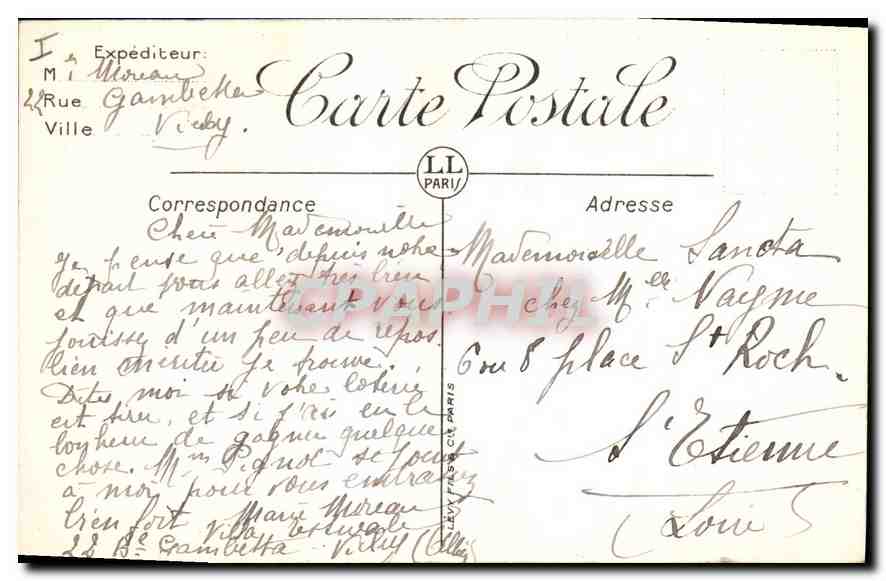 I
Expéditeur:
M Moreau
22 Rue Gambetta
Ville Vichy.
Carte Postale
LL
PARIS
Correspondance
Adresse
Chère Mademoiselle
Je pense que depuis notre
départ vous allez très bien
et que maintenant vous
jouissez d'un peu de repos
bien mérité je trouve.
Dites moi si votre loterie
est tirée, et si j'ai eu le
bonheur de gagner quelque
chose. Mme Pignol se joint
à moi pour vous embrasser
bien fort Marie Moreau
Villa
22 Bd Gambetta Vichy (Allier)
LEVY FILS & Cie PARIS
Mademoiselle Sancta
chez Melle Nayme
6 ou 8 place St Roch
St Etienne
(Loire)
CPAPHIL